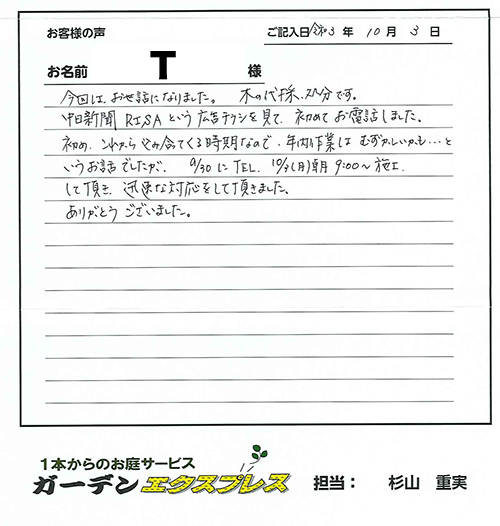 お客様の声
ご記入日 令和3年 10月 3日
お名前 T 様
今回は、お世話になりました。 木の伐採、処分です。
中日新聞 RISAという広告チラシを見て、初めてお電話しました。
初め、これから込み合てくる時期なので、年内作業はむずかしいかも…と
いうお話でしたが、 9/30にTEL、 (月)朝9:00〜施工
して頂き、迅速な対応をして頂きました。
ありがとうございました。
1本からのお庭サービス
ガーデンエクスプレス 担当： 杉山 重実